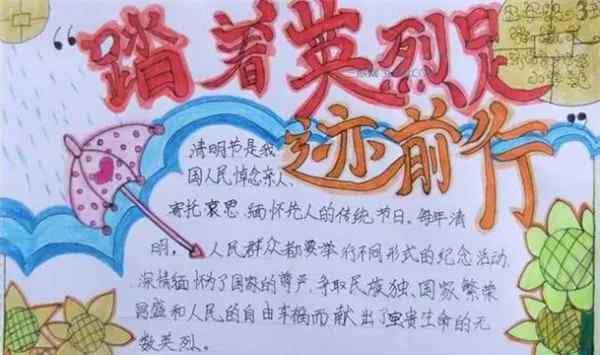 “踏着英烈足
迹前行”
清明节是我
国人民悼念亲人、
寄托哀思、缅怀先人的传统节日。每年清
明，人民群众都要举行不同形式的纪念活动，
深情缅怀为了国家的尊严、争取民族独、国家繁荣
昌盛和人民的自由幸福而献出了宝贵生命的无
数英烈。